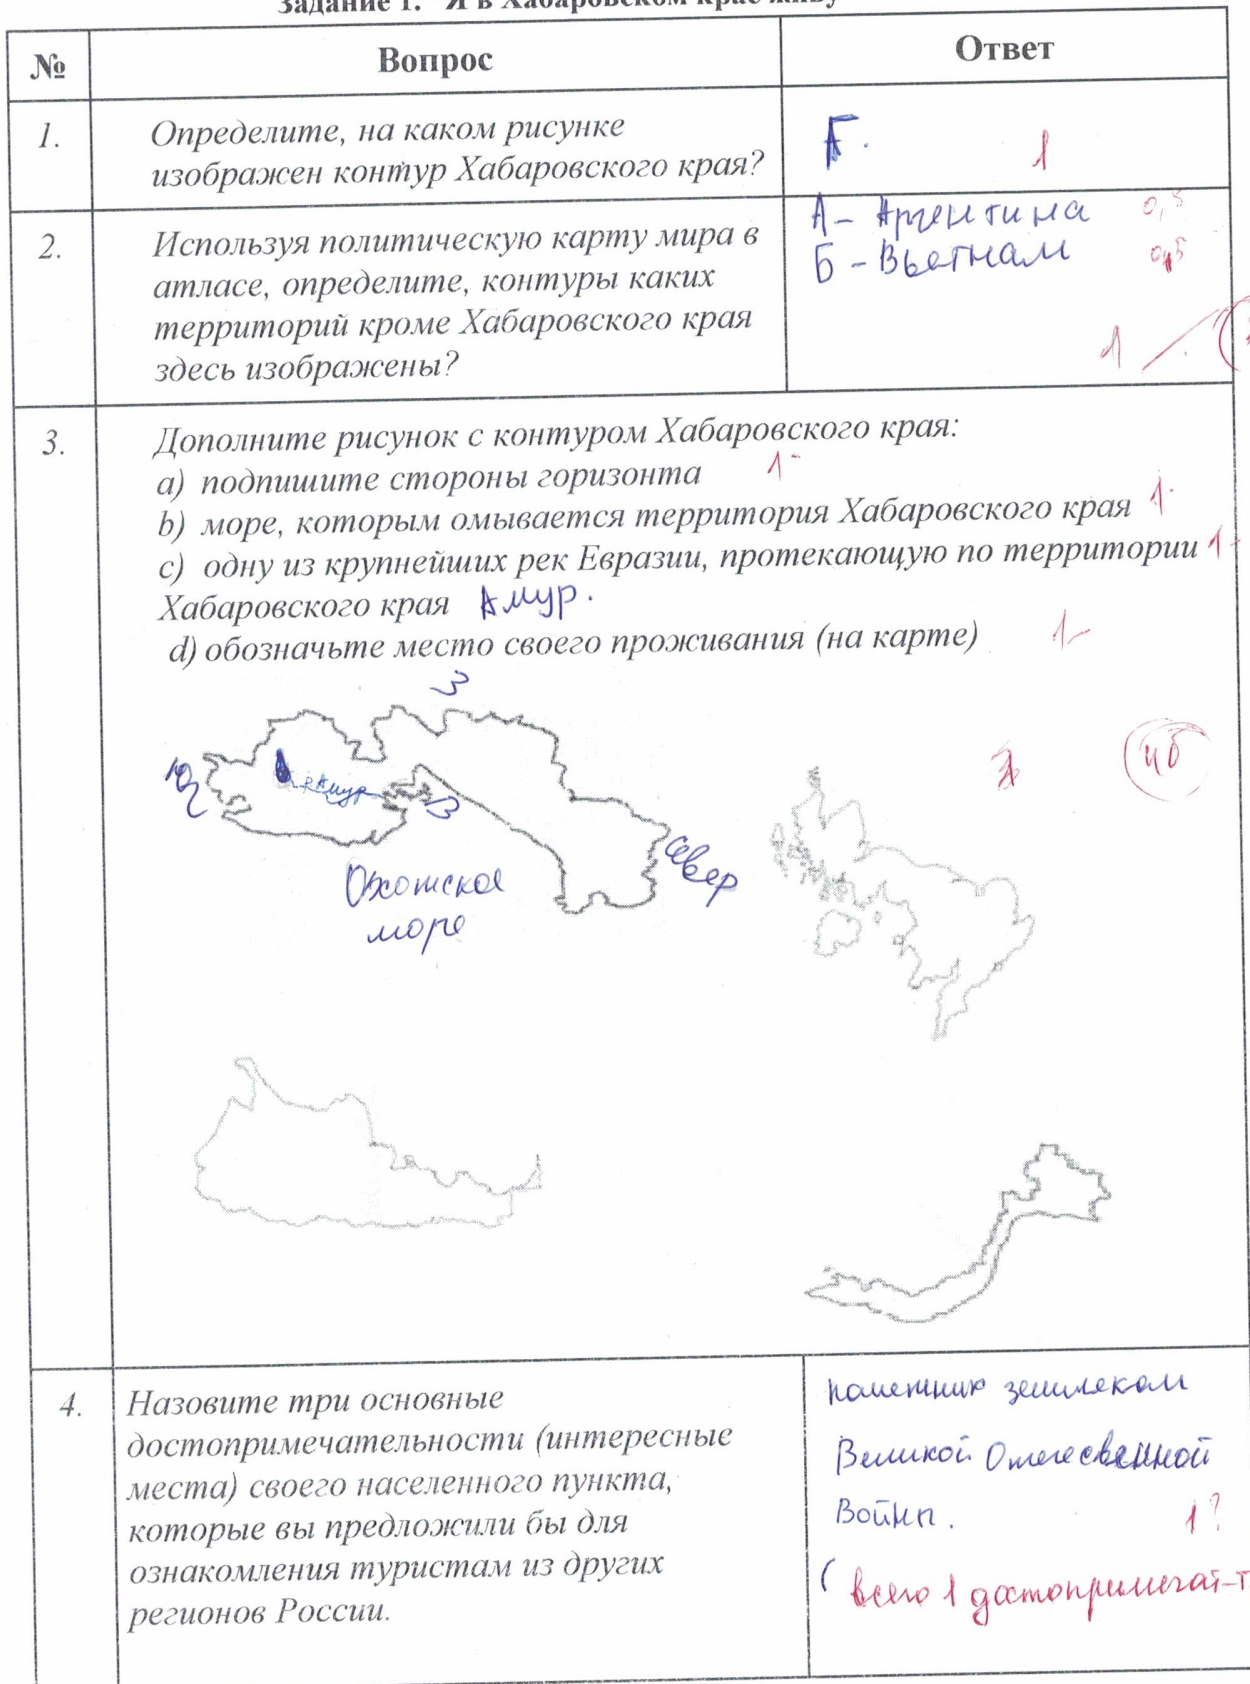 Задание 1. "Я в Хабаровском крае живу
№
Вопрос
Ответ
1.
Определите, на каком рисунке
изображен контур Хабаровского края?
1
2.
Используя политическую карту мира в
атласе, определите, контуры каких
территорий кроме Хабаровского края
здесь изображены?
А – Аргентина 0,5
Б – Вьетнам 0,5
1
3.
Дополните рисунок с контуром Хабаровского края:
a) подпишите стороны горизонта 1
b) море, которым омывается территория Хабаровского края 1
c) одну из крупнейших рек Евразии, протекающую по территории 1
Хабаровского края Амур.
d) обозначьте место своего проживания (на карте) 1
З
Ю
р Амур
В
Север
Охотское
море
4б
4.
Назовите три основные
достопримечательности (интересные
места) своего населенного пункта,
которые вы предложили бы для
ознакомления туристам из других
регионов России.
Великой Отечесвенной
Войны.
1?
(всего 1 достопримечат-т